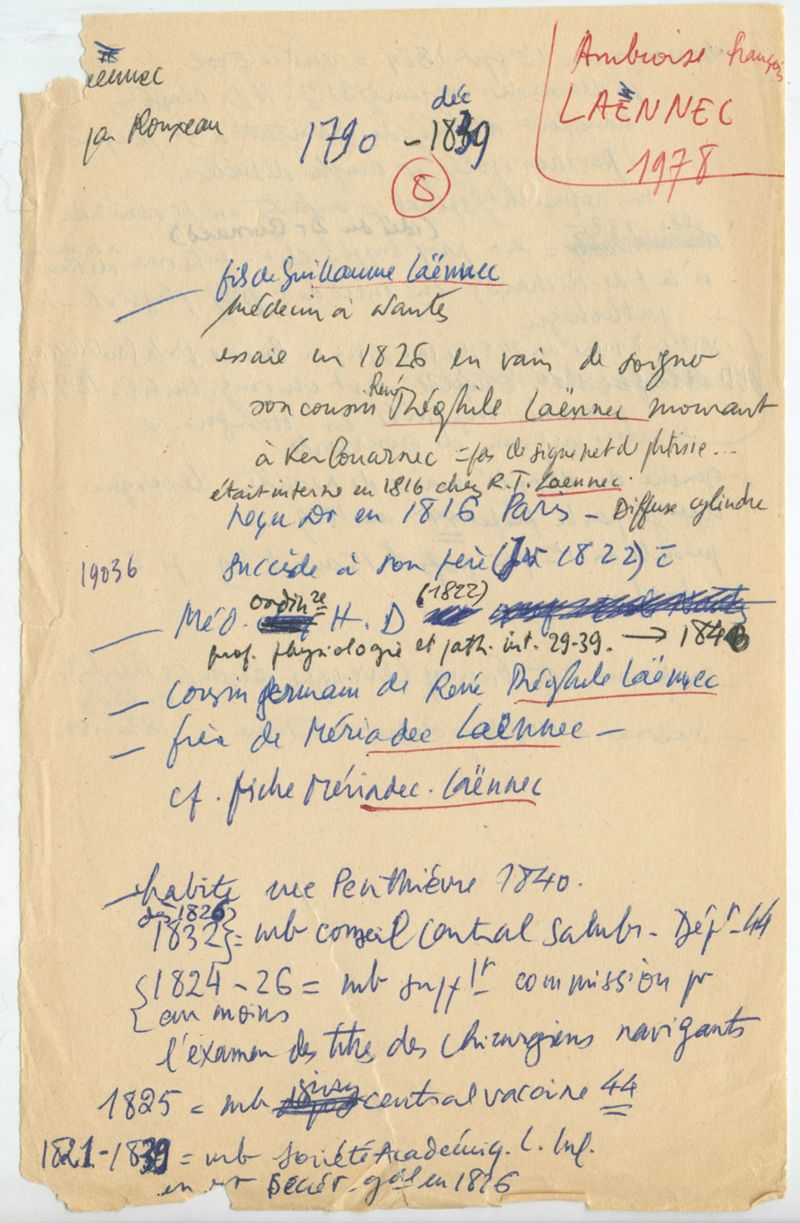 Laennec
par Rouxeau
Ambroise françois
LAËNNEC
1978
déc
1790 - 1839
8
fils de Guillaume Laënnec
médecin à Nantes
essaie en 1826 en vain de soigner
son cousin René Théophile Laënnec mourant
à KerLouarnec = pas de signe net de phtisie...
était interne en 1816 chez R. T. Laennec.
reçu Dr en 1816 Paris - Diffuse cylindre
19036
succède à son père ( 1822) c̄
Méd. ordinre H. D (1822)
prof. physiologie et path. int. 29-39. → 1840
- Cousin germain de René Théophile Laënnec
- frère de Mériadec Laënnec -
cf. fiche Mériadec. Laënnec
- habite rue Penthièvre 1840.
dès 1826
1832 } = mb conseil Central Salubr. - Dépt - 44
{ 1824 - 26 = mb suppt commission pr
au moins
l'examen des titres des chirurgiens navigants
1825 = mb jury central vaccine 44
1821-1839 = mb Société Académiq. L. Inf.
en est Secrét. gal en 1826